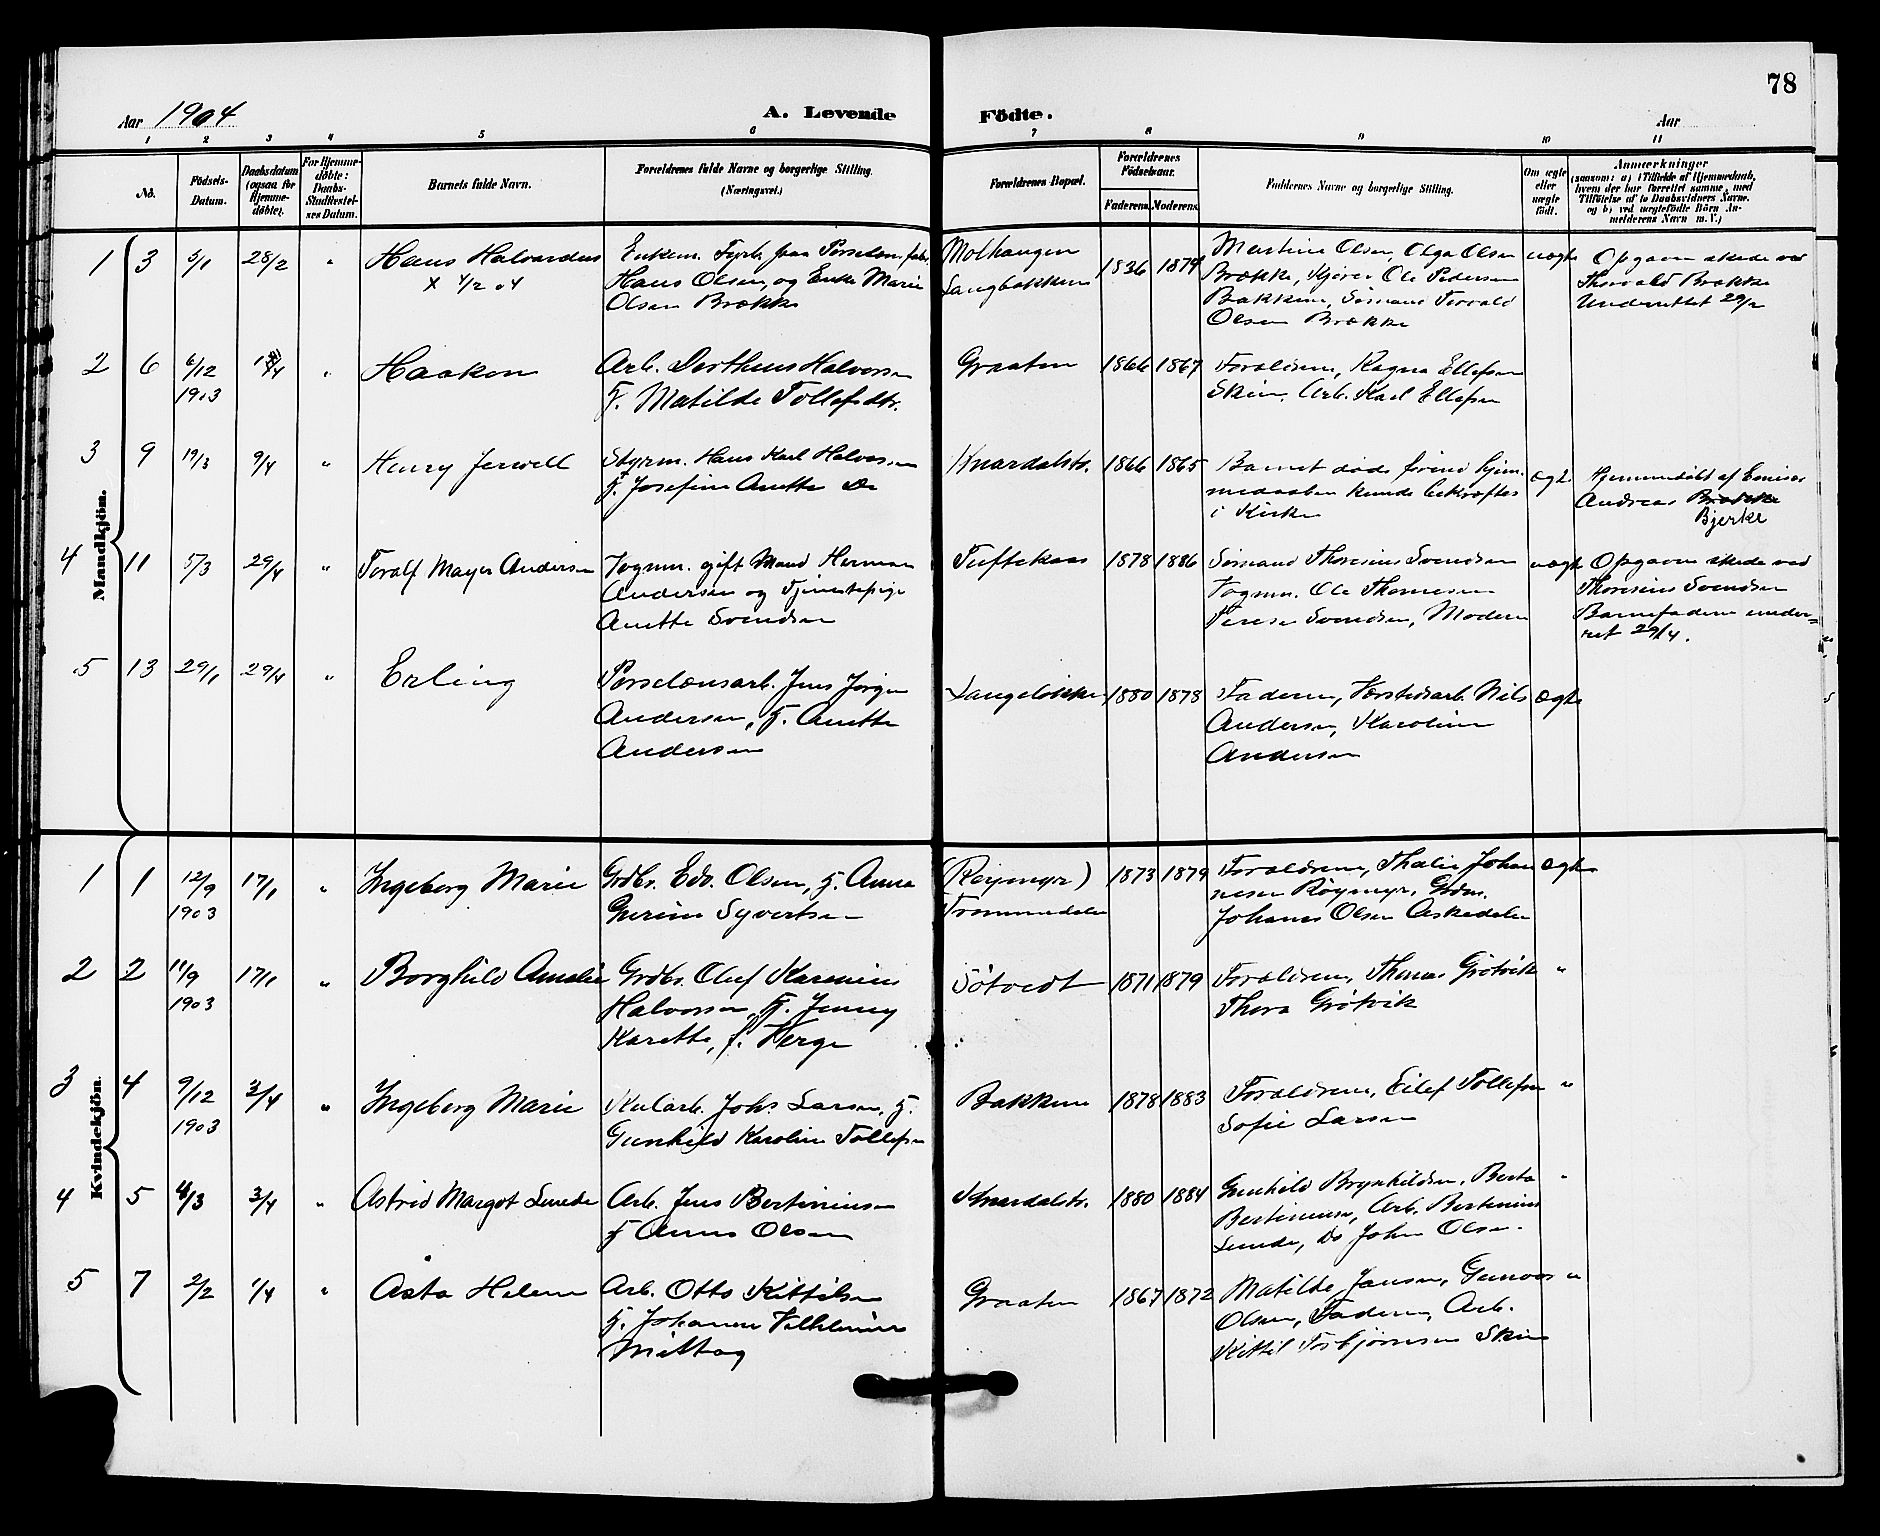 78
Aar 1904
A. Levende
Födte.
Aar
1 2 3 4 5 6 7 8 9 10 11
No.
Födsels-Datum.
Daabsdatum (ogsaa for Hjemmedöbte).
For Hjemmedöbte: Daabs-Stadfæstelses Datum.
Barnets fulde Navn.
Forældrenes fulde Navne og borgerlige Stilling. (Næringsvei.)
Forældrenes Bopæl.
Forældrenes Födselsaar.
Faderens. Moderens.
Faddernes Navne og borgerlige Stilling.
Om ægte eller uægte födt.
Anmærkninger
(saasom: a) i Tilfælde af Hjemmedaab, hvem der har forrettet samme, med Tilföielse af to Daabsvidners Navne. og b) ved uægtefödte Börn Anmelderens Navn m. V.)
Mandkjön.
1 3 5/1 28/2 " Hans Halvardus
x 4/2 04
Enkem. Fyrb. paa Porselænsfabr.
Hans Olsen, og Enke Marie
Olsen Brække
Molhaugen
Langbakken
1836 1874
Martine Olsen, Olga Olsen
Brække, Kjører Ole Pedersen
Bakken, Sömand Torvald
Olsen Brække
uægte
Opgaven skede ved
Thorvald Brække
Underrettet 29/2
2 6 6/12 1903 " Haakon
Arb. Dortheus Halvorsen
H. Matilde Tollefsdtr.
Graaten 1866 1867
Foraldrene, Ragna Ellefsen
Skien, Arb. Karl Ellefsen
3 9 19/3 9/4 " Henry Jerwell
Styrm. Hans Karl Halvorsen
H. Josefine Anette Do
Knardalstr. 1866 1865
Barnet døde førend hjem-
medaaben kunde bekræftes
i Kirken
ægte
Hjemmedöbt af Emisær
Andreas Brække
Bjerke
4 11 5/3 29/4 " Toralf Mayer Andersen
Vognm. gift Mand Herman
Andersen og Tjenestepige
Anette Svendsen
Tuftekaas 1878 1886
Sömand Thoresius Svendsen
Vognm. Ole Thomesen
Terese Svendsen, Moderen
uægte
Opgaven skede ved
Thoresius Svendsen
Barnefaderen under-
ret 29/4.
5 13 29/1 29/4 " Erling
Porselænsarb. Jens Jørgen
Andersen, H. Anette
Andersen
Langeløkke 1880 1878
Faderen, Værkstedsarb. Nils
Andersen, Karoline
Andersen
ægte
Kvindekjön.
1 1 12/9 1903 17/1 " Ingeborg Marie
Grdbr. Edv. Olsen, H. Anna
Gurine Syvertsen
(Røymyr)
Trommedalen
1873 1879
Foraldrene, Thalie Johan
nesen Røymyr, Grdm.
Johannes Olsen Askedalen
ægte
2 2 11/9 1903 17/1 " Borghild Amalie
Grdbr. Oluf Karenius
Halvorsen, H. Jenny
Karette, f. Herge
Sötvedt 1871 1879
Foraldrene, Thomas Grötvik
Thora Grötvik
"
3 4 9/12 1903 3/4 " Ingeborg Marie
Kularb. Johs. Larsen, H.
Gunhild Karoline Tollefsen
Bakken 1878 1883
Foraldrene, Eilef Tollefsen
Sofie Larsen
"
4 5 4/3 3/4 " Astrid Margot Lunde
Arb. Jens Bertiniussen
H Anna Olsen
Knardalstr. 1880 1884
Gunhild Brynhildsen, Berta
Bertiniusen, Arb. Bertinius
Lunde, Do John Olsen.
"
5 7 2/2 1/4 " Aasta Helene
Arb. Otto Kittilsen
H. Johanne Vilhelmine
Mittag
Graaten 1867 1872
Matilde Jansen, Gunvor
Olsen, Faderen, Arb.
Kittil Torbjörnsen Skien
"